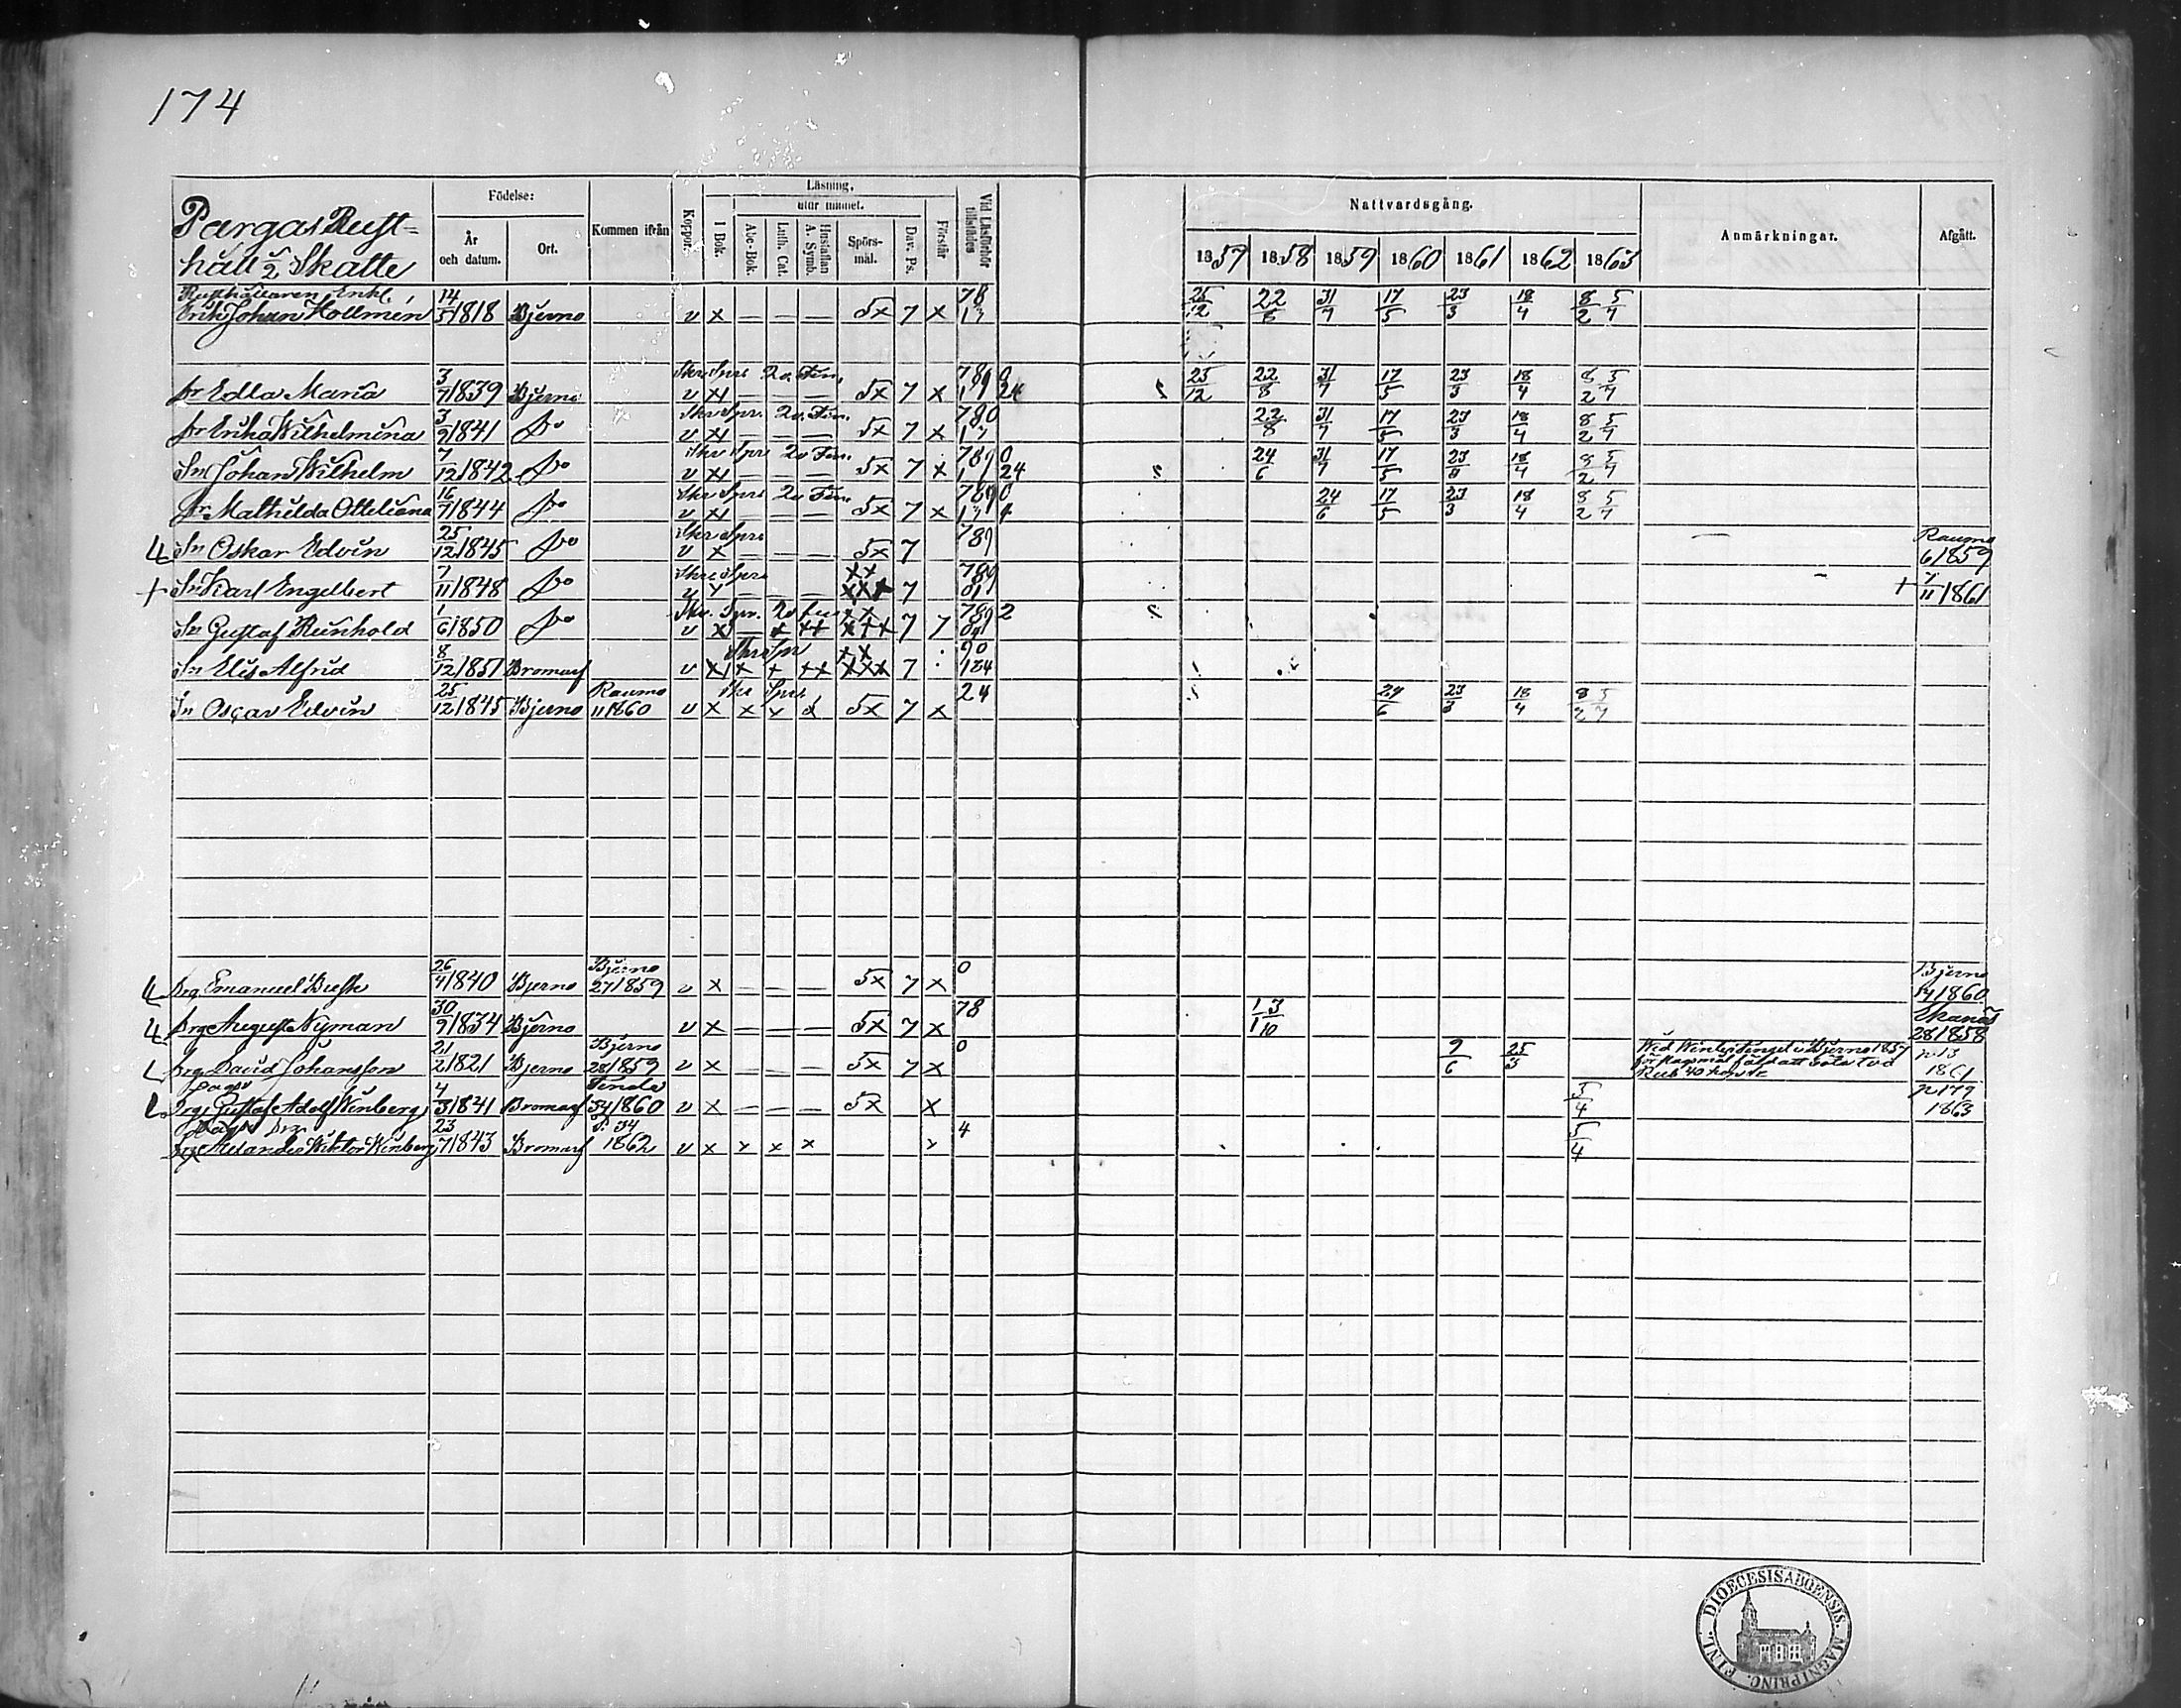 174
Pargas Rust-
håll 1/2 Skatte
Födelse:
År och datum.
Ort.
Kommen ifrån
Koppor.
Läsning,
I Bok.
utur minnet.
Abc-Bok.
Luth. Cat.
Hustaflan A. Symb.
Spörs-mål.
Dav. Ps.
Förstår
Vid Läsförhör tillstädes
Nattvardsgång.
1857 1858 1859 1860 1861 1862 1863
Anmärkningar.
Afgått.
Rusthållaren Enkl.
Erik Johan Hollmén 14/5 1818 Bjerno v x — — — 5x 7 x 78 25/12 22/8 31/7 17/5 23/3 18/4 8/2 5/4
Dr Edla Maria 3/7 1839 Bjerno v x — — — 5x 7 x 789 0 24 25/12 22/8 31/7 17/5 23/3 18/4 8/2 5/4
Dr Erika Wilhelmina 3/9 1841 Do v x — — — 5x 7 x 780 22/8 31/7 17/5 23/3 18/4 8/2 5/4
Sn Johan Wilhelm 7/12 1842 Do v x — — — 5x 7 x 789 0 24 24/6 31/7 17/5 23/3 18/4 8/2 5/4
Dr Mathilda Otteliana 16/7 1844 Do v x — — — 5x 7 x 789 0 4 24/6 17/5 23/3 18/4 8/2 5/4
Sn Oskar Edvin 25/12 1845 Do v x — — — 5x 7 789 Raumo 6/1859
+ Sn Karl Engelbert 7/11 1848 Do v — — — xx xxx 7 789 + 7/11 1861
Sn Gustaf Reinhold 1/6 1850 Do v x — x xx 7 7 789 2
Sn Elis Alfrid 8/12 1851 Bromarf v x x x xx xxx 7 90 124
Sn Oscar Edvin 25/12 1845 Bjerno Raumo 11/1860 v x x x 5x 7 x 24 24/6 23/3 18/4 8/2 5/4
Drg Emanuel Busk 26/4 1840 Bjerno Bjerno 27/1859 v x — — — 5x 7 x 0 Bjerno 14/1860
Drg August Nyman 30/9 1834 Bjerno v x — — — 5x 7 x 78 1/1 3/10 Ekenäs 28/1858
Drg David Johansson 21/2 1821 Bjerno Bjerno 28/1859 v x — — — 5x 7 x 0 9/6 25/5 Wid Winterting i Bjerno 1857 att böta två Rub 40 kop p 13 1861
Drg Gustaf Adolf Winberg 4/3 1841 Bromarf Tenala 34/1860 v x — — — 5x x 5/4 p 179 1863
Wiktor Winberg 23/7 1843 Bromarf P. 34 1862 v x x x x x 4 5/4
FINL. DIOECESIS ABOENSIS. MAGNI PRINC.